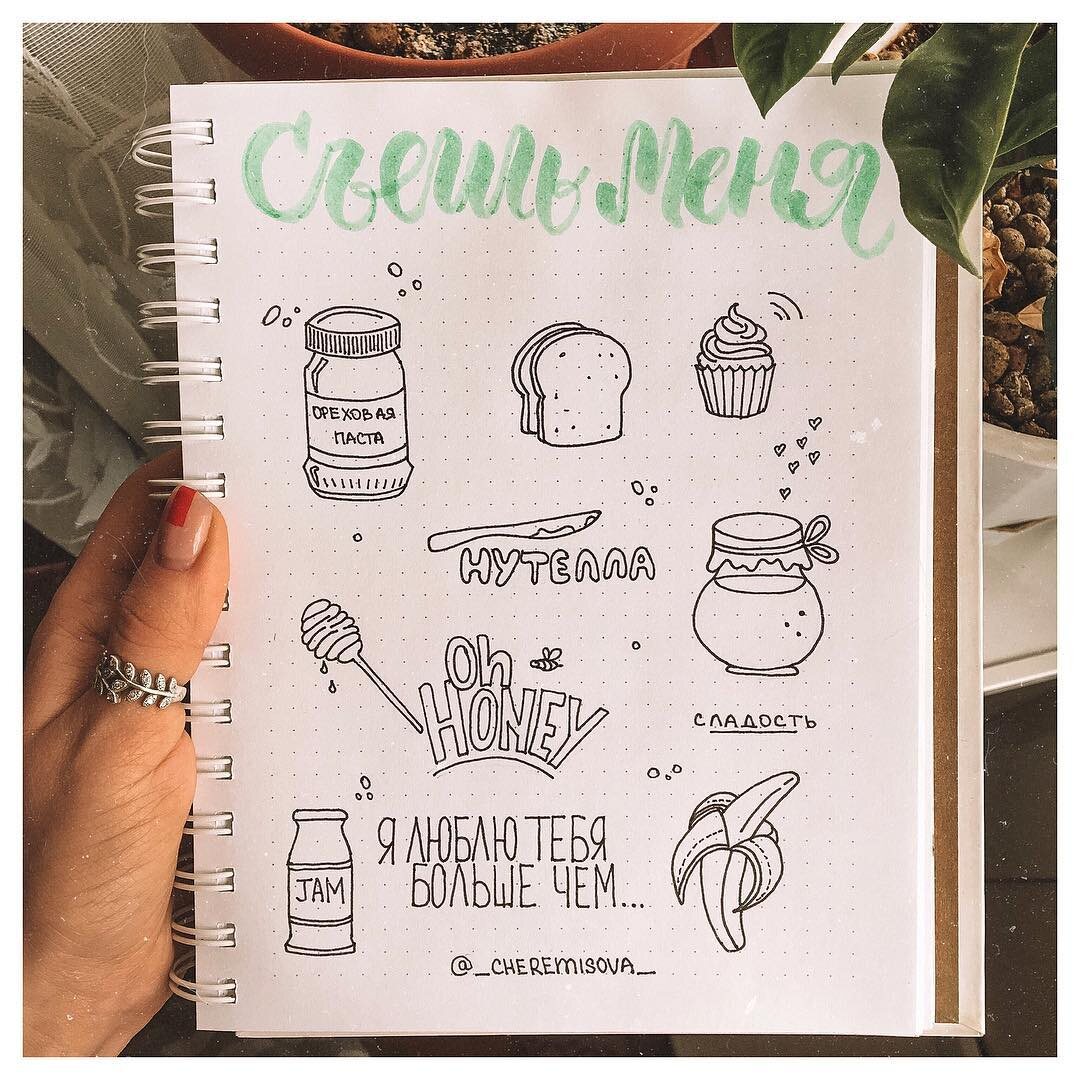 Съешь меня
ОРЕХОВАЯ
ПАСТА
НУТЕЛЛА
Oh
HONEY
СЛАДОСТЬ
JAM
Я ЛЮБЛЮ ТЕБЯ
БОЛЬШЕ ЧЕМ...
@_CHEREMISOVA_